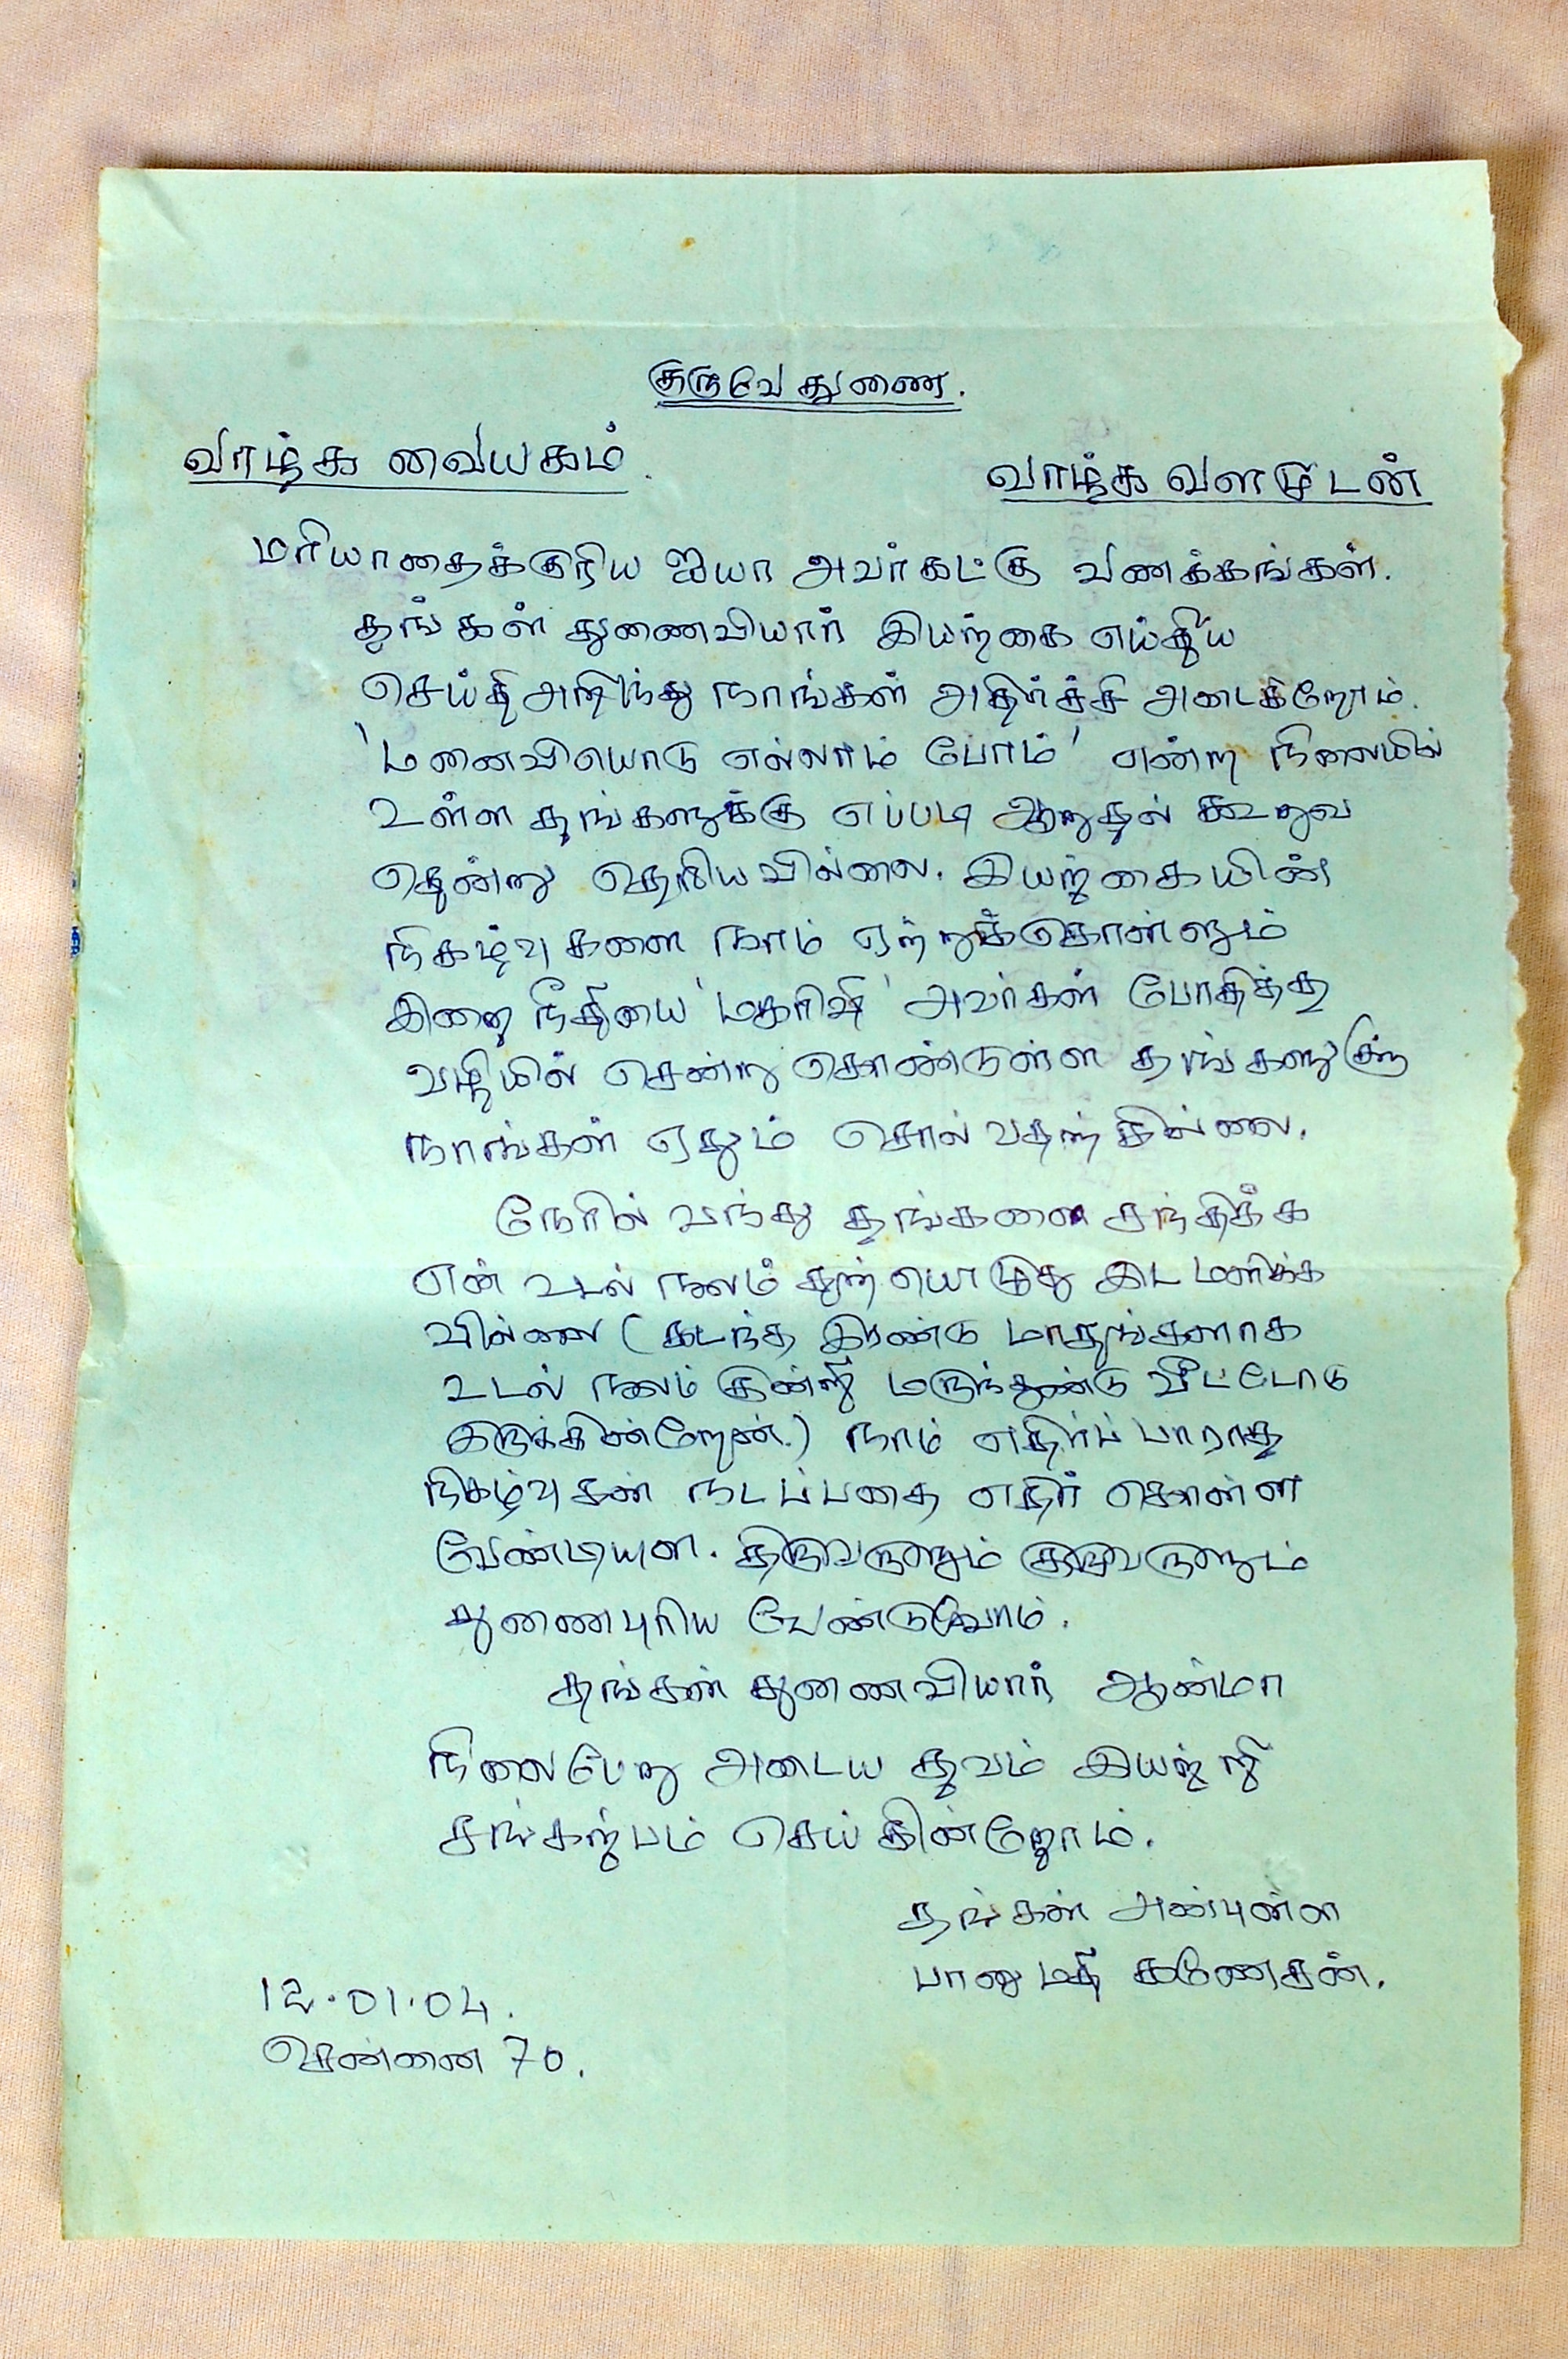 குருவே துணை.
வாழ்க வையகம்.
வாழ்க வளமுடன்
மரியாதைக்குரிய ஐயா அவர்கட்கு வணக்கங்கள்.
தங்கள் துணைவியார் இயற்கை எய்திய
செய்தி அறிந்து நாங்கள் அதிர்ச்சி அடைகிறோம்.
'மனைவியொடு எல்லாம் போம்' என்ற நிலையில்
உள்ள தங்களுக்கு எப்படி ஆறுதல் கூறுவ
தென்று தெரியவில்லை. இயற்கையின்
நிகழ்வுகளை நாம் ஏற்றுக்கொள்ளும்
இறை நீதியை 'மகரிஷி' அவர்கள் போதித்த
வழியில் சென்று கொண்டுள்ள தாங்களுக்கு
நாங்கள் ஏதும் சொல்வதற்கில்லை.
நேரில் வந்து தங்களை சந்திக்க
என் உடல் நலம் தற்பொழுது இடமளிக்க
வில்லை (கடந்த இரண்டு மாதங்களாக
உடல் நலம் குன்றி மருந்துண்டு வீட்டோடு
இருக்கின்றேன்.) நாம் எதிர்ப்பாராத
நிகழ்வுகள் நடப்பதை எதிர் கொள்ள
வேண்டியுள. திருவருளும் குருவருளும்
துணைபுரிய வேண்டுவோம்.
தங்கள் துணைவியார் ஆன்மா
நிலைபேறு அடைய தவம் இயற்றி
சங்கற்பம் செய்கின்றோம்.
தங்கள் அன்புள்ள
பானுமதி கணேசன்.
12.01.04.
சென்னை 70.